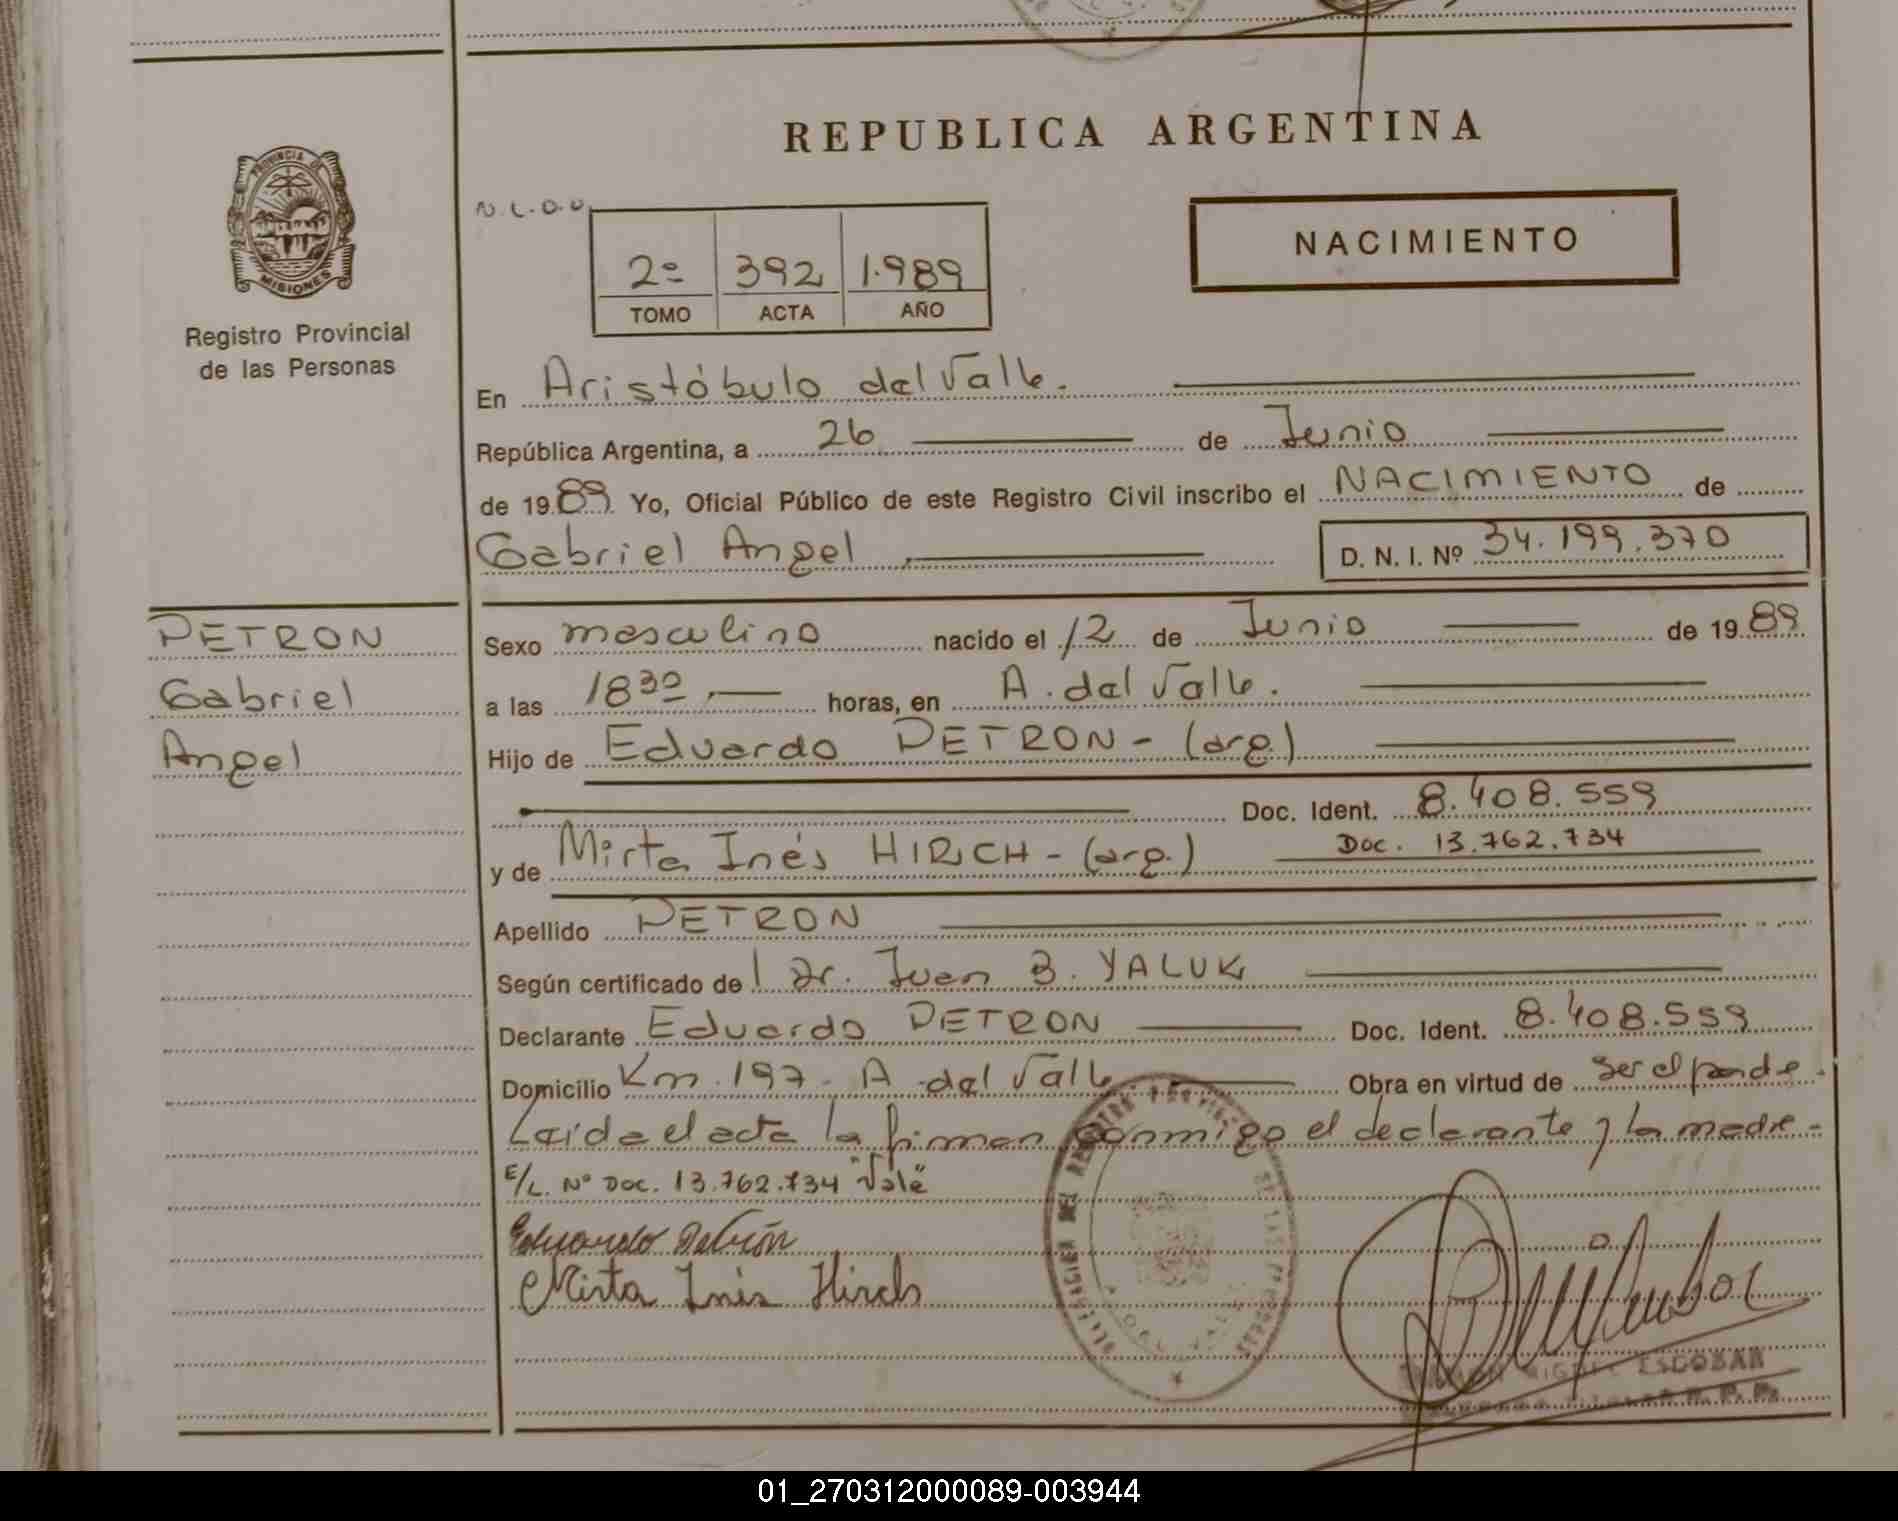 REPUBLICA ARGENTINA
PROVINCIA D
MISIONES
Registro Provincial
de las Personas
N.L.O.U.
2º 392 1.989
TOMO ACTA AÑO
NACIMIENTO
En Aristóbulo del Valle.
República Argentina, a 26 de Junio
de 1989 Yo, Oficial Público de este Registro Civil inscribo el NACIMIENTO de
Gabriel Angel
D. N. I. Nº 34.199.370
PETRON
Gabriel
Angel
Sexo masculino nacido el 12 de Junio de 1989
a las 18³⁰ horas, en A. del Valle.
Hijo de Eduardo PETRON - (arg.)
Doc. Ident. 8.408.559
y de Mirta Inés HIRCH - (arg.) Doc. 13.762.734
Apellido PETRON
Según certificado del Dr. Juan B. YALUK
Declarante Eduardo PETRON Doc. Ident. 8.408.559
Domicilio Km. 197 - A. del Valle Obra en virtud de ser el padre.
Leída el acta la firman conmigo el declarante y la madre -
E/L. Nº Doc. 13.762.734 "Vale"
Eduardo Petrón
Mirta Inés Hirch
DELEGACION DEL REGISTRO PROVINCIAL DE LAS PERSONAS
A. DEL VALLE
MIGUEL ESCOBAR
R. P. P.
01_270312000089-003944